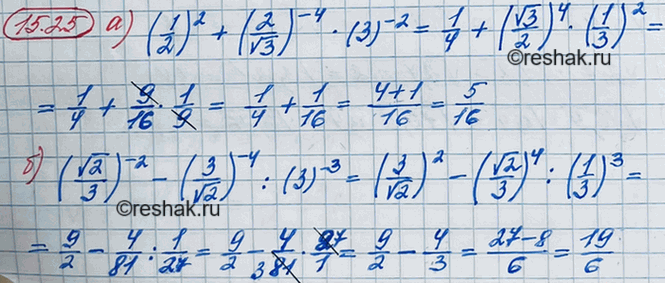 15.25 а) (1/2)² + (2/√3)⁻⁴ · (3)⁻² = 1/4 + (√3/2)⁴ · (1/3)² =
©reshak.ru
= 1/4 + 9/16 · 1/9 = 1/4 + 1/16 = (4+1)/16 = 5/16
©reshak.ru
б) (√2/3)⁻² − (3/√2)⁻⁴ : (3)⁻³ = (3/√2)² − (√2/3)⁴ : (1/3)³ =
©reshak.ru
= 9/2 − 4/81 : 1/27 = 9/2 − 4/₃81 · 27/1 = 9/2 − 4/3 = (27−8)/6 = 19/6